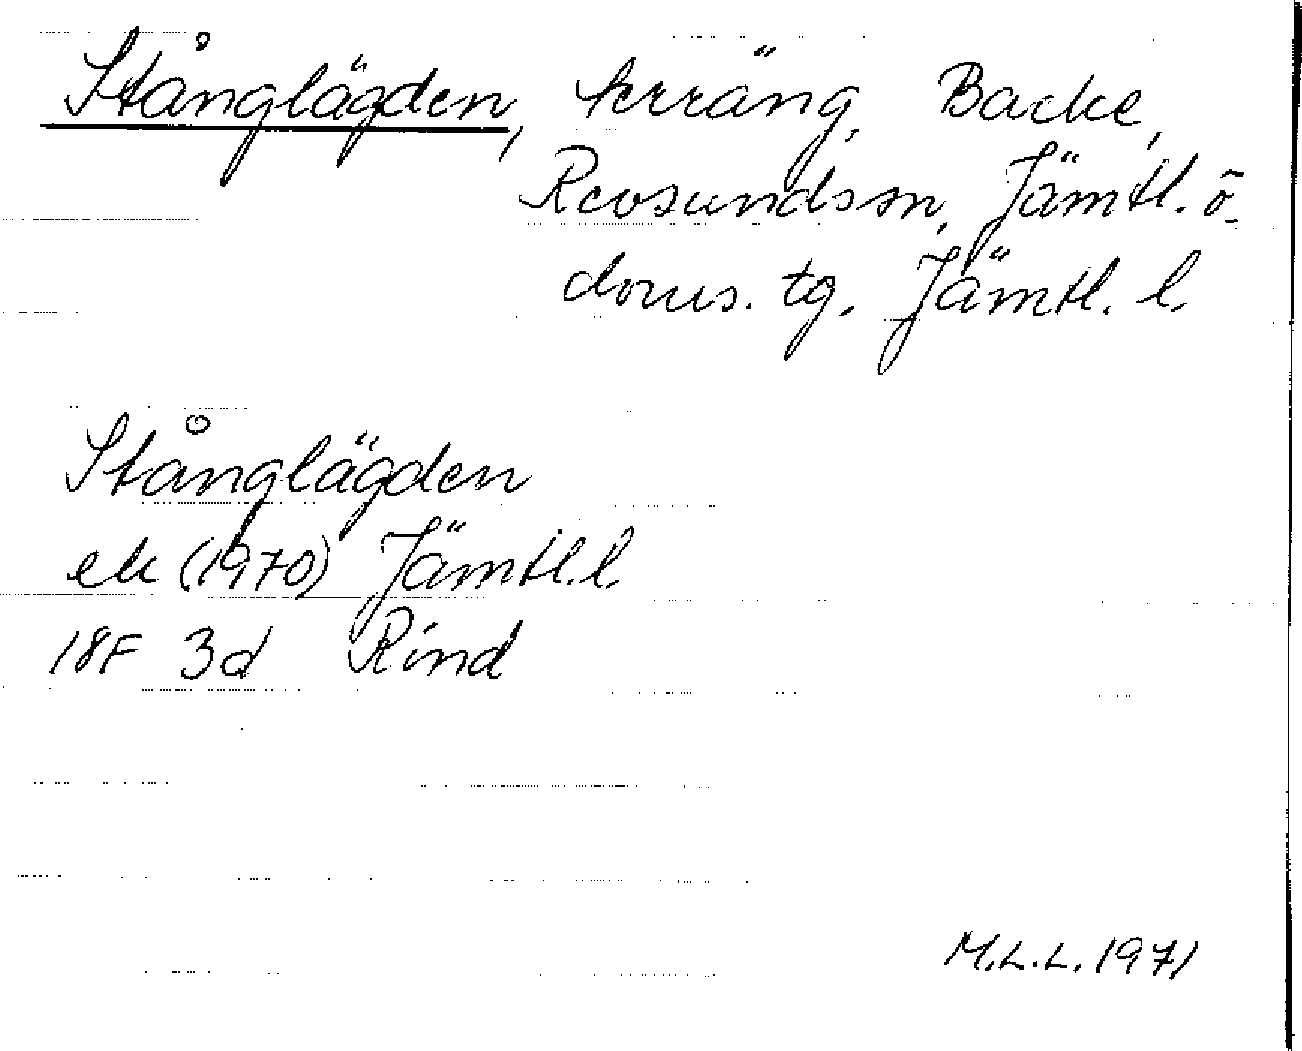 Stånglägden, terräng, Backe,
Revsundssn, Jämtl. ö.
doms. tg. Jämtl. l.
Stånglägden
ek (1970) Jämtl. l.
18F 3d Rind
M.L.L. 1971